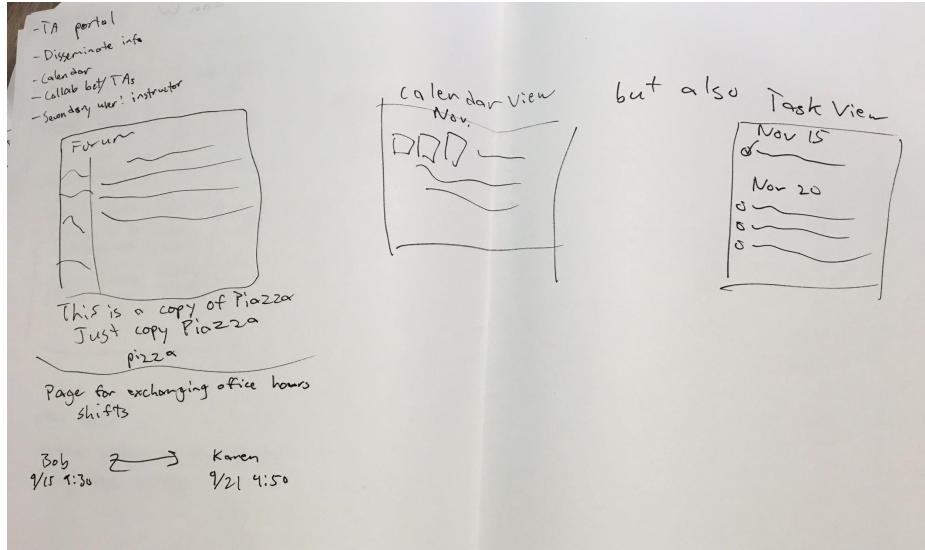 - TA portal
- Disseminate info
- Calendar
- Collab bet/ TAs
- Secondary user: instructor
Forum
This is a copy of Piazza
Just copy Piazza
pizza
Page for exchanging office hours
shifts
Bob
Karen
9/15 9:30
9/21 4:50
Calendar View
Nov.
but also Task View
Nov 15
Nov 20